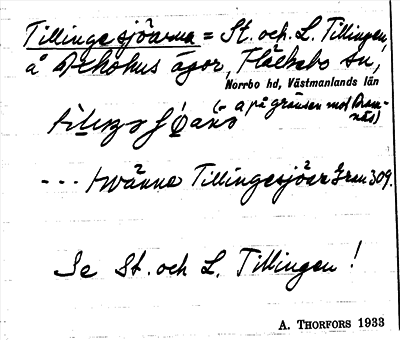 Tillingesjöarna = St. och. L. Tillingen,
å Dekohus ägor, Fläckebo sn,
Norrbo hd, Västmanlands län
(= a på gränsen mot
--- tvänne Tillingesjöar Grau 309.
Se St. och L. Tillingen!
A. THORFORS 1933